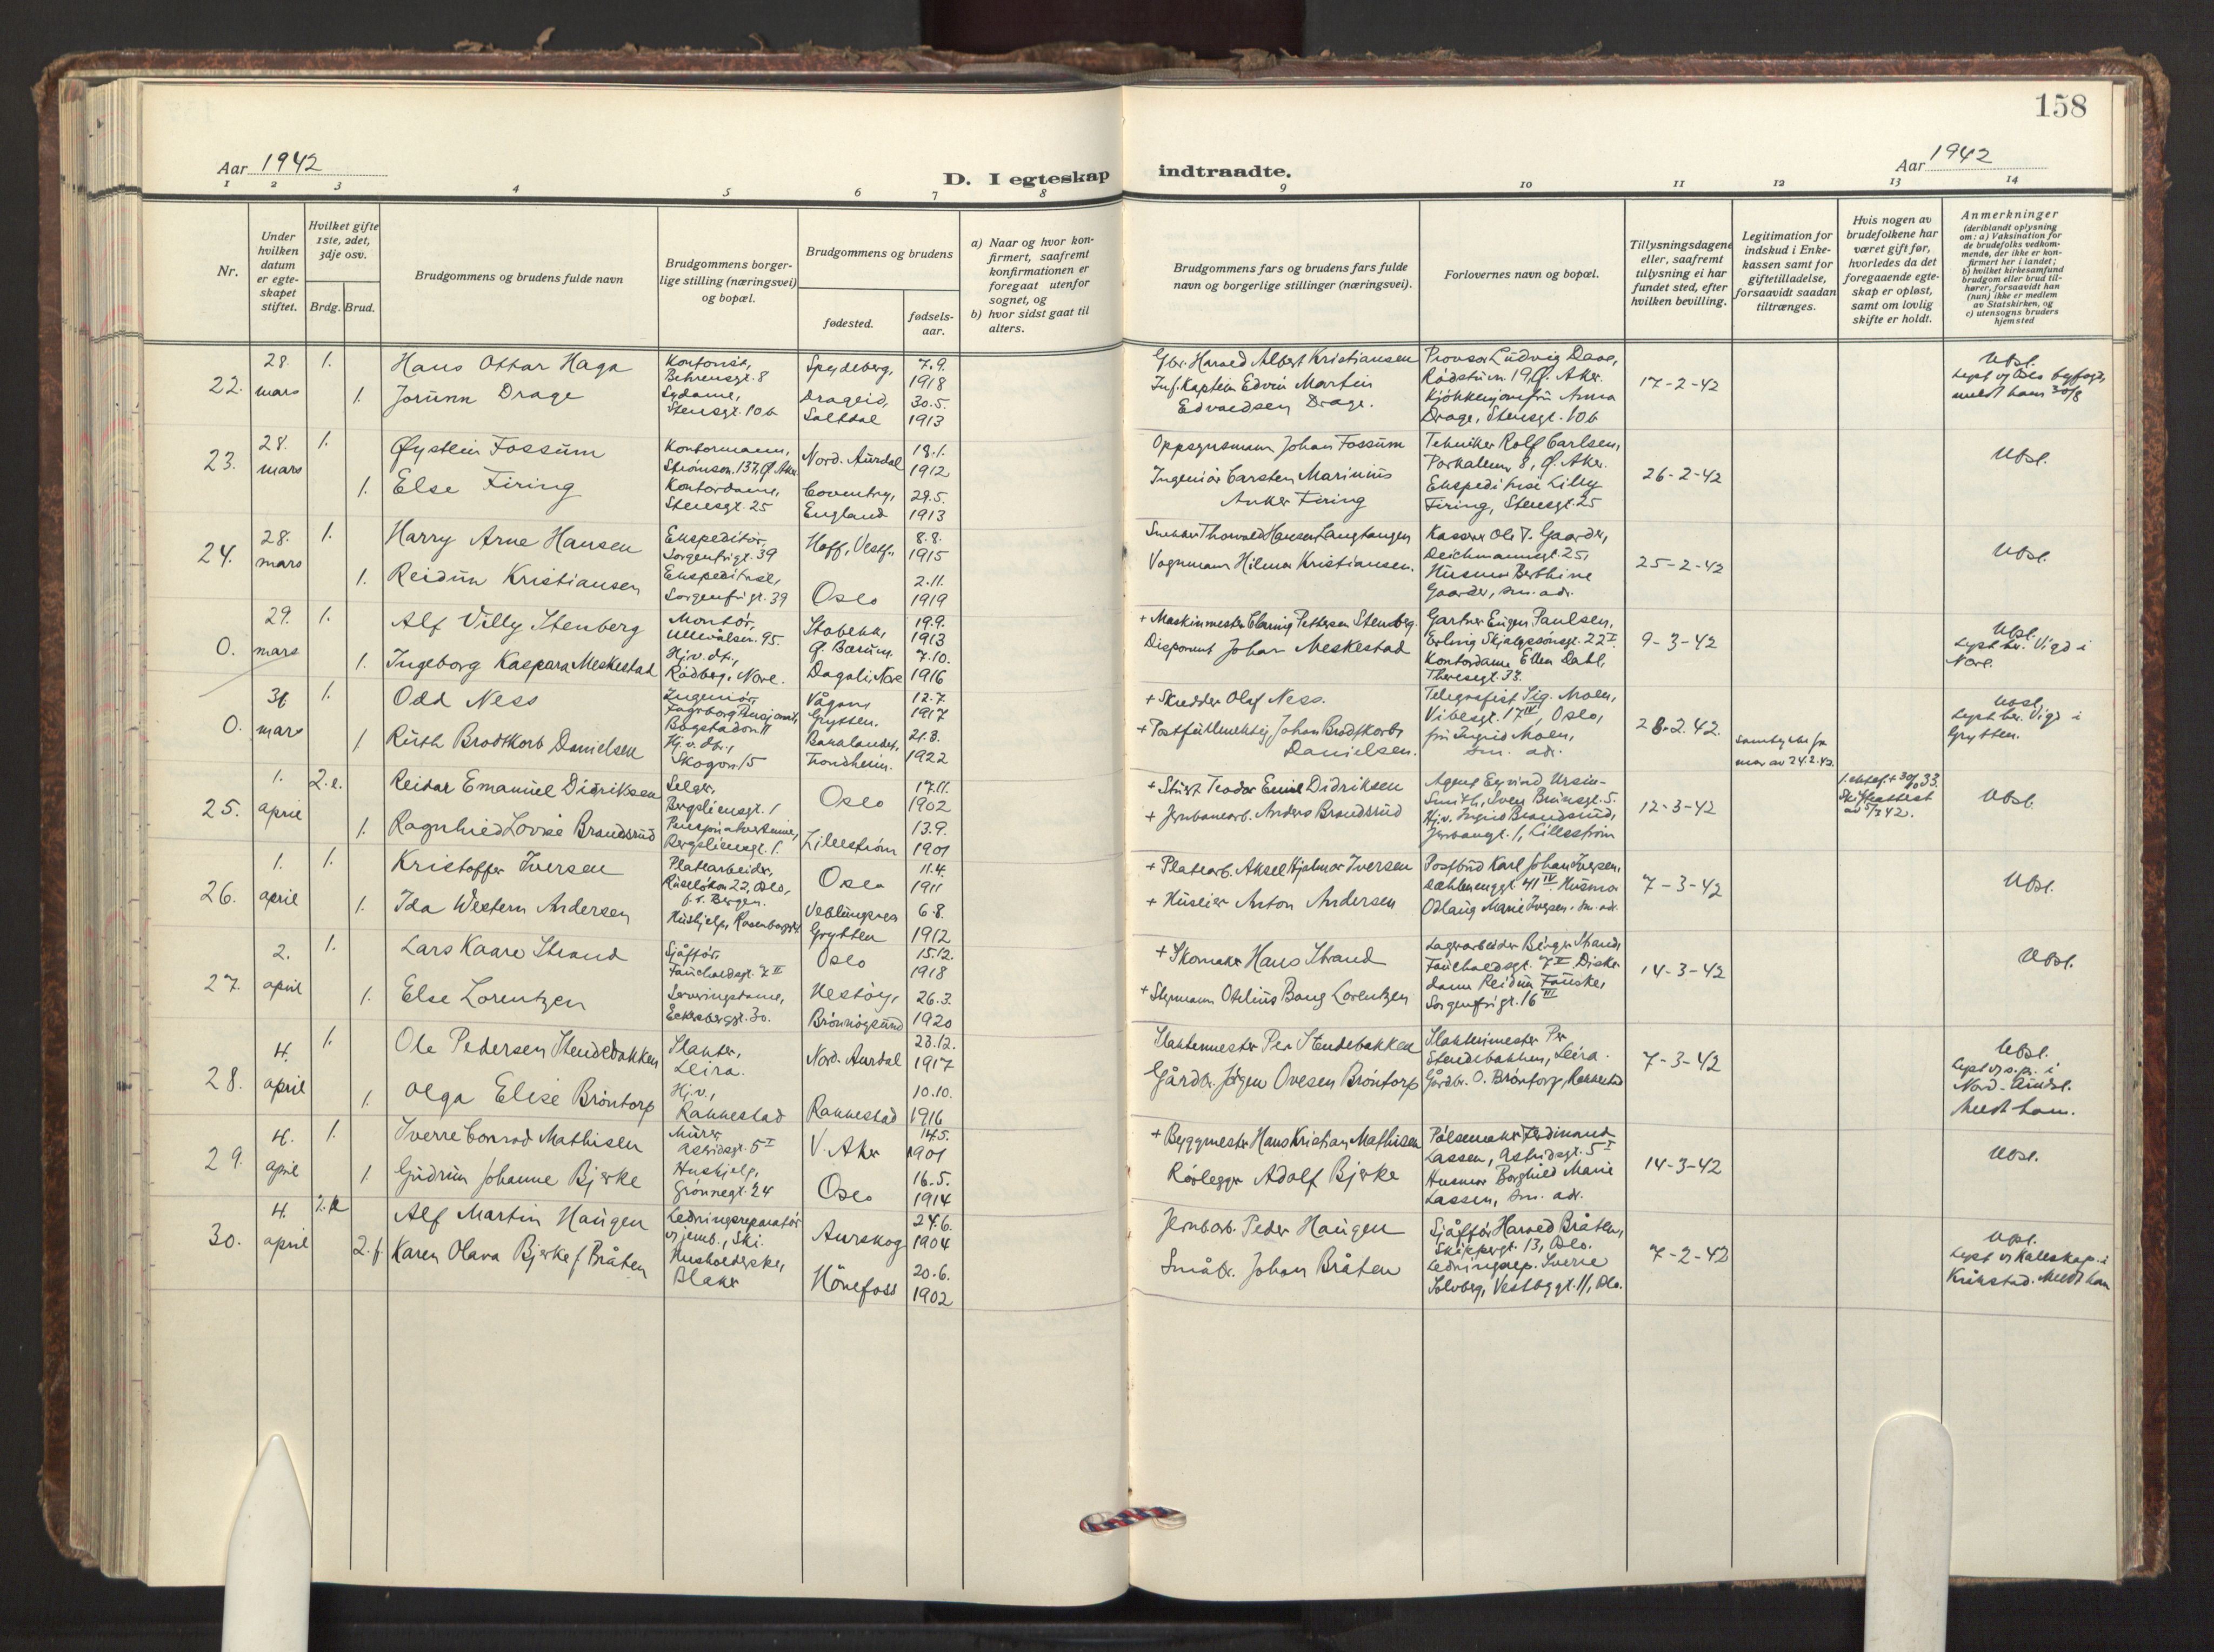 158
Aar 1942
D. I egteskap indtraadte.
Aar 1942
1 2 3 4 5 6 7 8 9 10 11 12 13 14
Nr.
Under hvilken datum er egteskapet stiftet.
Hvilket gifte 1ste, 2det, 3dje osv.
Brdg. Brud.
Brudgommens og brudens fulde navn
Brudgommens borgerlige stilling (næringsvei) og bopæl.
Brudgommens og brudens
fødested.
fødselsaar.
a) Naar og hvor konfirmert, saafremt konfirmationen er foregaat utenfor sognet, og
b) hvor sidst gaat til alters.
Brudgommens fars og brudens fars fulde navn og borgerlige stillinger (næringsvei).
Forlovernes navn og bopæl.
Tillysningsdagene eller, saafremt tillysning ei har fundet sted, efter hvilken bevilling.
Legitimation for indskud i Enkekassen samt for giftetilladelse, forsaavidt saadan tiltrænges.
Hvis nogen av brudefolkene har været gift før, hvorledes da det foregaaende egteskap er opløst, samt om lovlig skifte er holdt.
Anmerkninger (deriblandt oplysning om: a) Vaksination for de brudefolks vedkommende, der ikke er konfirmert her i landet; b) hvilket kirkesamfund brudgom eller brud tilhører, forsaavidt han (hun) ikke er medlem av Statskirken, og c) utensogns bruders hjemsted
22. 28. mars 1. Hans Ottar Haga Kontorist, Behrensgt. 8 Spydeberg, 7.9. 1918
1. Jorunn Drage Sydame, Stensgt. 10b Drageid, Saltdal 30.5. 1913
Gbr. Harald Albert Kristiansen
Inf. Kaptein Edvin Martin Edvardsen Drage.
Provsor Ludvig Daae, Rådstuvn. 19, Ø. Aker.
Kjøkkenjomfru Anna Drage, Stensgt. 10b
17-2-42
Ubsl.
23. 28. mars 1. Øystein Fossum Kontormann, Strømsvn. 137, Ø. Aker Nord. Aurdal 18.1. 1912
1. Else Firing Kontordame, Stensgt. 25 Coventry, England 29.5. 1913
Oppsynsmann Johan Fossum
Ingeniør Carsten Marinius Anker Firing
Tekniker Rolf Carlsen, 8, Ø. Aker.
Ekspeditrise Lilly Firing, Stensgt. 25
26-2-42
Ubsl.
24. 28. mars 1. Harry Arne Hansen Ekspeditør, Sorgenfrigt. 39 Hoff, Vestf., 8.8. 1915
1. Reidun Kristiansen Ekspeditrise, Sorgenfrigt. 39 Oslo 2.11. 1919
Thorvald Hansen Langtangen
Vognmann Hilmar Kristiansen.
Kasserer Ole T. Gaarder, Deichmannsgt. 25,
Husmor Berthine Gaarder, sm. adr.
25-2-42
Ubsl.
0. 29. mars 1. Alf Villy Stenberg Montør, Ullevålsv. 95. Stabekk, Ø. Bærum. 19.9. 1913
1. Ingeborg Kaspara Meskestad Hj.v. dtr., Rødberg, Nore. Dagali, Nore 7.10. 1916
+ Maskinmester Pettersen Stenberg.
Disponent Johan Meskestad
Gartner Eugen Paulsen, Erling Skjalgssønsgt. 22 I
Kontordame Ellen Dahl, Theresegt. 33.
9-3-42
Ubsl. Lyst bor. Vigd i Nore.
0. 31 mars 1. Odd Ness Ingeniør, Bogstadvn 11 Vågan, Grytten. 12.7. 1917
1. Ruth Brodtkorb Danielsen Hj.v. dtr., Skogvn. 15 Bakalandet, Trondheim. 21.8. 1922
+ Skredder Olaf Ness.
+ Postfullmektig Johan Brodtkorb Danielsen.
Telegrafist Sig. Moen, Vibesgt. 17 IV, Oslo,
fru Ingrid Moen, sm. adr.
28-2.42.
Samtykke fra mor av 24.2.42.
Ubsl. Lyst her. Vigd i Grytten.
25. 1. april 2.e. Reidar Emanuel Didriksen Selger, Bergsliensgt. 1 Oslo 17.11. 1902
1. Ragnhild Lovise Brandsrud Bergsliensgt. 1. Lillestrøm 13.9. 1901
+ Stuert Teodor Emil Didriksen
+ Jernbanearb. Anders Brandsrud
Agent Eyvind Ursin-Smith, Sven Brunsgt. 5.
Hj.v. Ingrid Brandsrud, Jernbanegt. 1, Lillestrøm
12-3-42
Skifteattest av 5/3 42.
Ubsl.
26. 1. april 1. Kristoffer Iversen Platearbeider, Ruseløkvn 22, Oslo, f. t. Bergen. Oslo 11.4. 1911
1. Ida Western Andersen Hushjelp, Rosenborggt. Veblungsnes Grytten 6.8. 1912
+ Platearb. Aksel Hjalmar Iversen
+ Huseier Anton Andersen
Postbud Karl Johan Iversen, Dæhlenenggt. 41 IV. Husmor
Odlaug Marie Iversen, sm. adr.
7-3-42
Ubsl.
27. 2. april 1. Lars Kaare Strand Sjåffør, Fauchaldsgt. 7 II Oslo 15.12. 1918
1. Else Lorentzen Serveringsdame, Eckersbergsgt. 30. Brønnøysund 26.3. 1920
+ Skomaker Hans Strand
+ Styrmann Otelius Bang Lorentzen
Lagerarbeider Birger Strand, Fauchaldsgt. 7 II. Diskedame Reidun Fauske, Sorgenfrigt. 16 III
14-3-42
Ubsl.
28. 4. april 1. Ole Pedersen Stendebakken Slakter, Leira. Nord. Aurdal 28.12. 1917
1. Olga Elise Brøntorp Hj.v., Rakkestad Rakkestad 10.10. 1916
Slaktermester Per Stendebakken
Gårdbr. Jørgen Ovesen Brøntorp
Slaktermester Per Stendebakken, Leira.
Gårdbr. O. Brøntorp, Rakkestad
7-3-42
Ubsl. Lyst v/ s.p. i Nord-Aurdal. Meldt ham.
29. 4. april 1. Sverre Conrad Mathisen Murer, Astridsgt. 5 I V. Aker 14.5. 1901
1. Gudrun Johanne Bjerke Hushjelp, Grønnegt. 24 Oslo 16.5. 1914
+ Byggmester Hans Kristian Mathisen
Rørlegger Adolf Bjerke
Pølsemaker Ferdinand Lassen, Astridsgt. 5 I
Husmor Borghild Marie Lassen, sm. adr.
14-3-42
Ubsl.
30. 4. april Alf Martin Haugen Ledningsreparatør v/ jernb., Ski. Aurskog 24.6. 1904
2. f. Karen Olava Bjerke f. Bråten Husholderske, Blaker Hönefoss 20.6. 1902
Jernbarb. Peder Haugen
Småbr. Johan Bråten
Sjåffør Harald Bråten, Skippergt. 13, Oslo.
Ledningsrep. Sverre Solberg, Vestbygt. 11, Oslo.
7-2-42
Ubsl. Kråkstad. Meldt ham